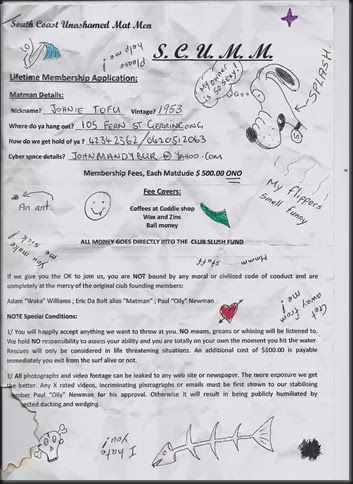 South Coast Unashamed Mat Men
Please help me!
S. C. U. M. M.
Lifetime Membership Application:
My owner is so sexy!
SPLASH
Matman Details:
Nickname? JOHNIE TOFU Vintage? 1953
Where do ya hang out? 105 FERN ST GERRINGONG
How do we get hold of ya ? 42342362/0420512063
Cyber space details? JOHNMANDYBUR @ YAHOO.COM
Membership Fees, Each Matdude $ 500.00 ONO
My flippers
Smell funny
Fee Covers:
An ant.
Coffees at Cuddie shop
Wax and Zinc
Bail money
ALL MONEY GOES DIRECTLY INTO THE CLUB SLUSH FUND
You make me sick!
Mmmm stuff
Get away from me!
If we give you the OK to join us, you are NOT bound by any moral or civilised code of conduct and are
completely at the mercy of the original club founding members:
Adam "Waka" Williams ; Eric Da Bolt alias "Matman" ; Paul "Oily" Newman
NOTE Special Conditions:
1/ You will happily accept anything we want to throw at you. NO means, groans or whining will be listened to.
We hold NO responsibility to assess your ability and you are totally on your own the moment you hit the water.
Rescues will only be considered in life threatening situations. An additional cost of $100.00 is payable
immediately you exit from the surf alive or not.
2/ All photographs and video footage can be leaked to any web site or newspaper. The more exposure we get
the better. Any X rated videos, incriminating photographs or emails must be first shown to our stabilising
member Paul "Oily" Newman for his approval. Otherwise it will result in being publicly humiliated by
ected-dacking and wedging.
I hate you!